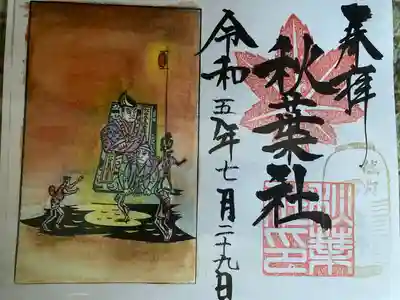 奉拝
秋葉社
令和五年七月二十九日
秋葉